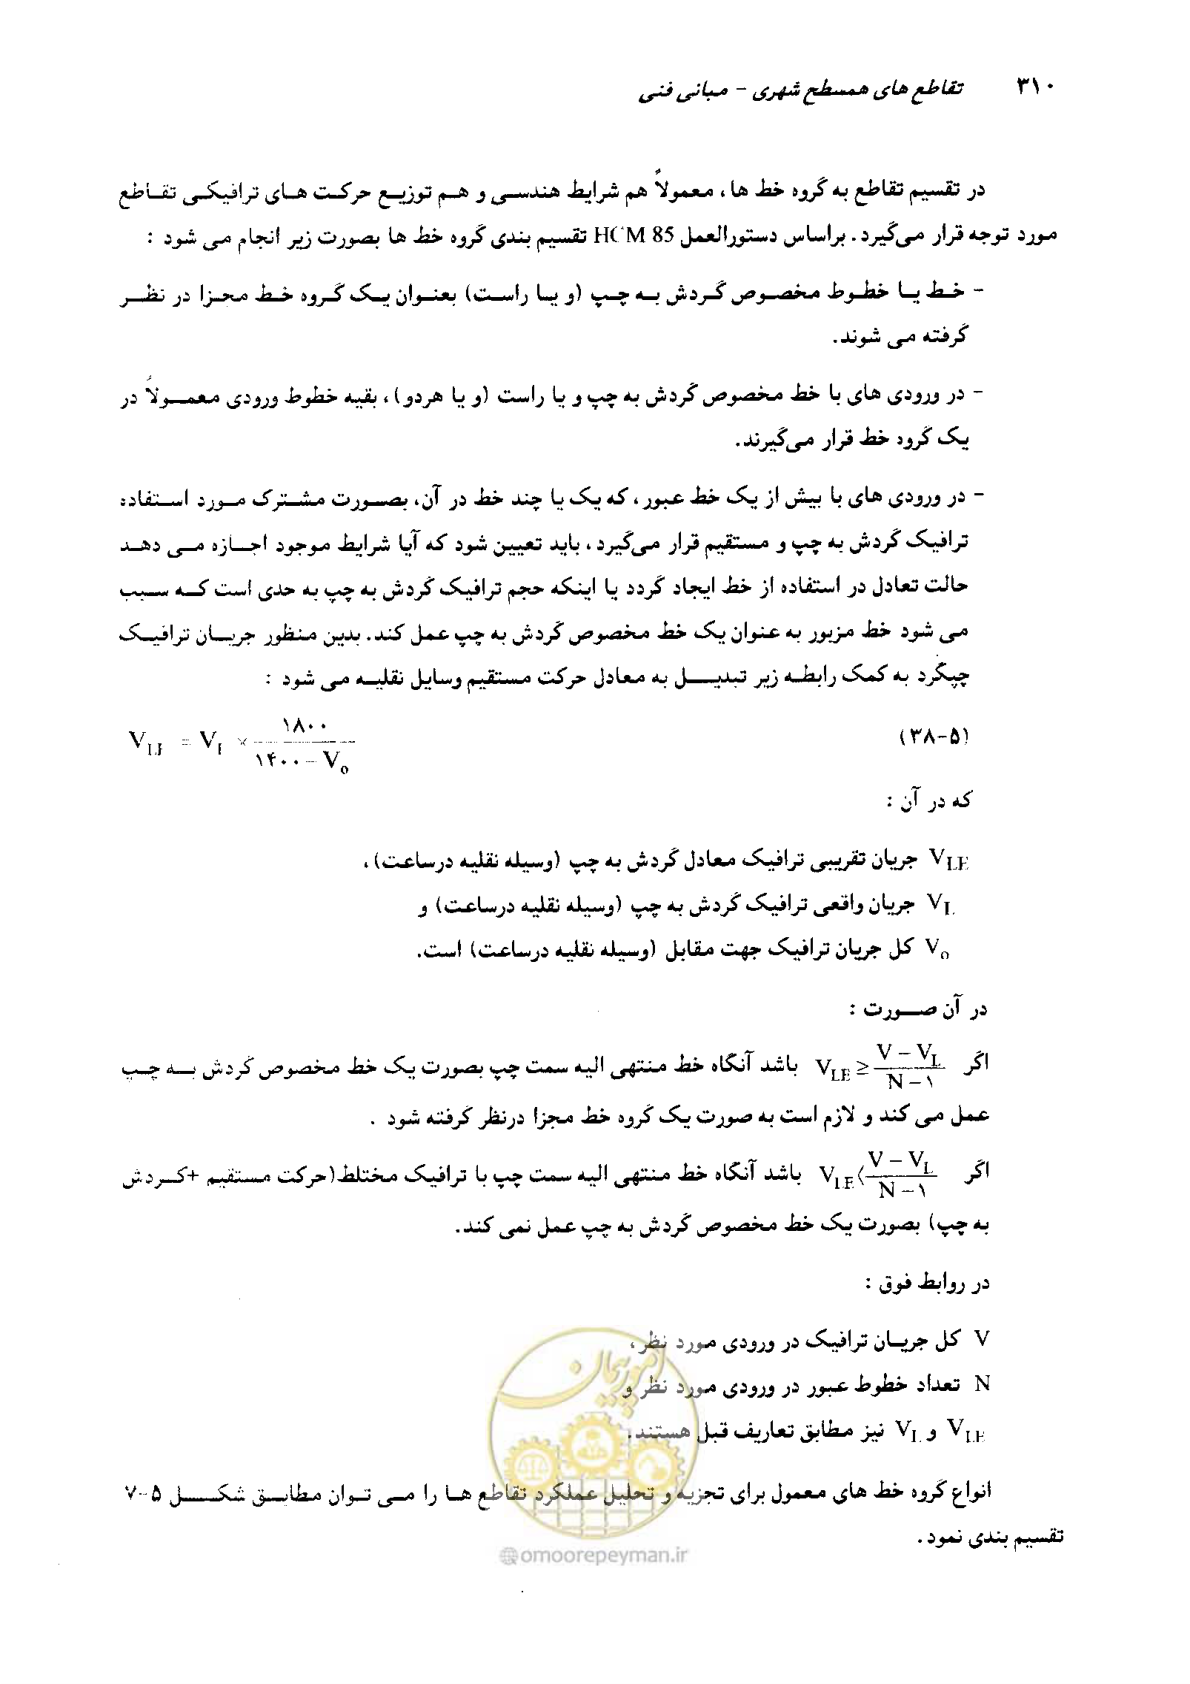 ۳۱۰ تقاطع های همسطح شهری - مبانی فنی
در تقسیم تقاطع به گروه خط ها ، معمولاً هم شرایط هندسی و هم توزیع حرکت های ترافیکی تقاطع
مورد توجه قرار می‌گیرد . براساس دستورالعمل HCM 85 تقسیم بندی گروه خط ها بصورت زیر انجام می شود :
- خط یا خطوط مخصوص گردش به چپ (و یا راست) بعنوان یک گروه خط مجزا در نظر
گرفته می شوند.
- در ورودی های با خط مخصوص گردش به چپ و یا راست (و یا هردو) ، بقیه خطوط ورودی معمولاً در
یک گروه خط قرار می‌گیرند.
- در ورودی های با بیش از یک خط عبور ، که یک یا چند خط در آن، بصورت مشترک مورد استفاده
ترافیک گردش به چپ و مستقیم قرار می‌گیرد ، باید تعیین شود که آیا شرایط موجود اجازه می دهد
حالت تعادل در استفاده از خط ایجاد گردد یا اینکه حجم ترافیک گردش به چپ به حدی است که سبب
می شود خط مزبور به عنوان یک خط مخصوص گردش به چپ عمل کند. بدین منظور جریان ترافیک
چپگرد به کمک رابطه زیر تبدیل به معادل حرکت مستقیم وسایل نقلیه می شود :
(۵-۳۸) V_LE = V_L × ۱۸۰۰ / (۱۴۰۰ - V_o)
که در آن :
V_LE جریان تقریبی ترافیک معادل گردش به چپ (وسیله نقلیه درساعت) ،
V_L جریان واقعی ترافیک گردش به چپ (وسیله نقلیه درساعت) و
V_o کل جریان ترافیک جهت مقابل (وسیله نقلیه درساعت) است.
در آن صورت :
اگر V_LE ≥ (V - V_L) / (N - ۱) باشد آنگاه خط منتهی الیه سمت چپ بصورت یک خط مخصوص گردش به چپ
عمل می کند و لازم است به صورت یک گروه خط مجزا درنظر گرفته شود .
اگر V_LE ⟨ (V - V_L) / (N - ۱) باشد آنگاه خط منتهی الیه سمت چپ با ترافیک مختلط (حرکت مستقیم +گردش
به چپ) بصورت یک خط مخصوص گردش به چپ عمل نمی کند.
در روابط فوق :
V کل جریان ترافیک در ورودی مورد نظر ،
N تعداد خطوط عبور در ورودی مورد نظر و
V_LE و V_L نیز مطابق تعاریف قبل هستند.
انواع گروه خط های معمول برای تجزیه و تحلیل عملکرد تقاطع ها را می توان مطابق شکل ۵-۷
تقسیم بندی نمود .
امور پیمان
@omoorepeyman.ir